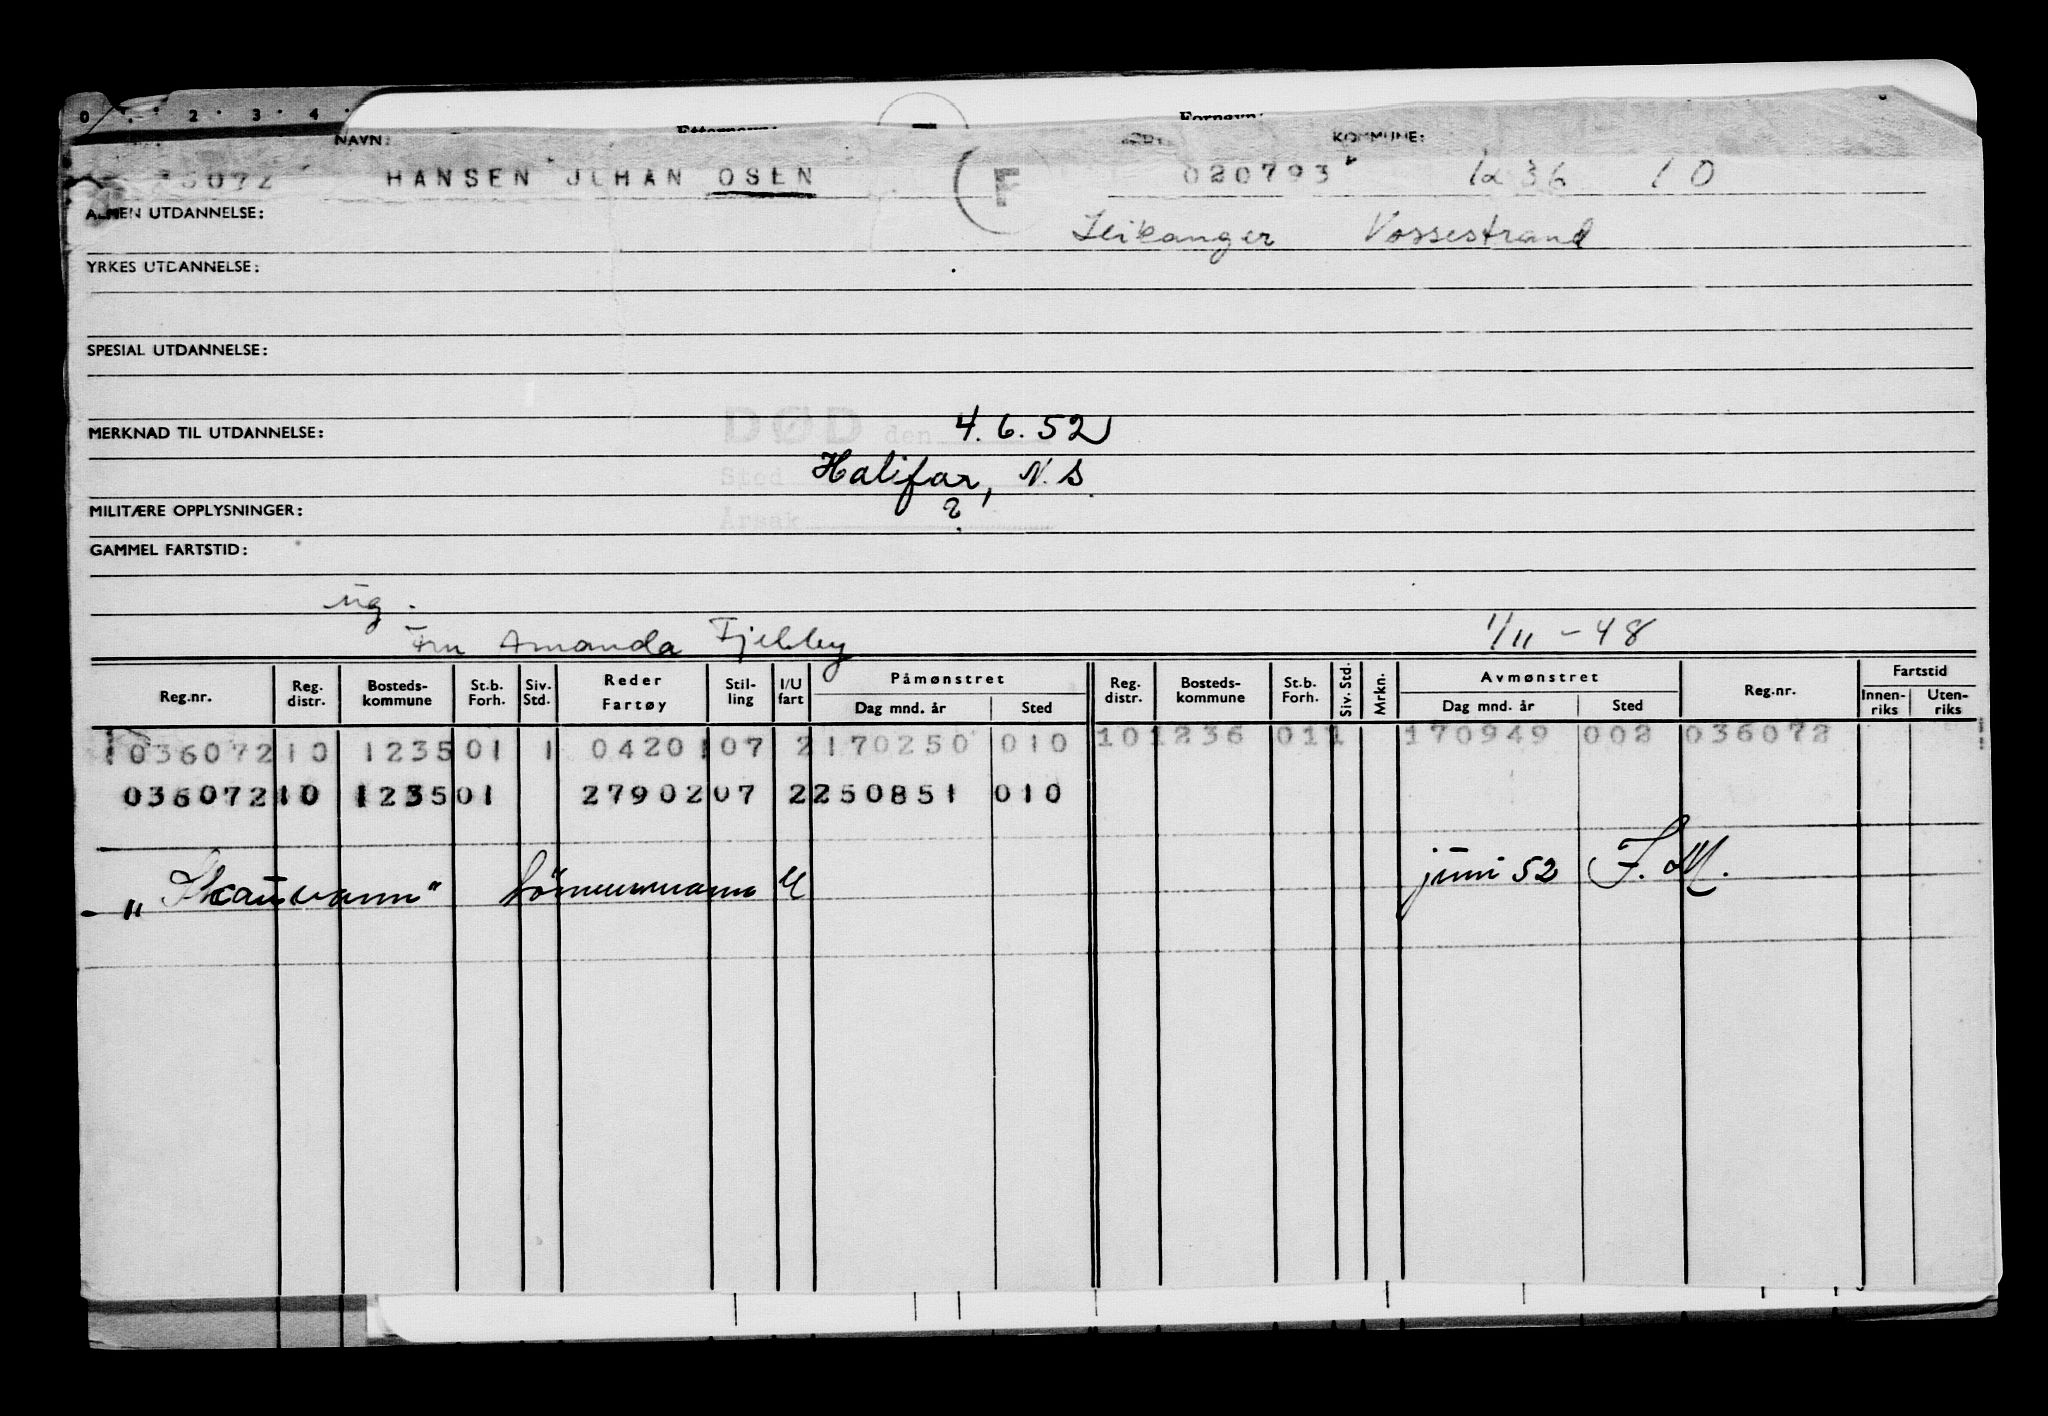 0 2 3 4
Etternavn: Fornavn:
NAVN: KOMMUNE:
36072 HANSEN JOHAN OSEN F 020793 1236 10
ALMEN UTDANNELSE:
Leikanger Vossestrand
YRKES UTDANNELSE:
SPESIAL UTDANNELSE:
MERKNAD TIL UTDANNELSE: DØD den 4.6.52
Sted Halifax, N.S.
MILITÆRE OPPLYSNINGER: Årsak ?
GAMMEL FARTSTID:
ug.
Fru Amanda Fjelby 1/11-48
Reg.nr. Reg. distr. Bosteds-kommune St.b. Forh. Siv. Std. Reder Fartøy Stil-ling I/U fart Påmønstret Dag mnd. år Sted Reg. distr. Bosteds-kommune St.b. Forh. Siv. Std. Mrkn. Avmønstret Dag mnd. år Sted Reg.nr. Fartstid Innen-riks Uten-riks
036072 10 1235 01 1 0420 1 07 2 170250 010 10 1236 01 1 170949 002 036072
036072 10 1235 01 27902 07 2 250851 010
"Skauvann" tømmermann U juni 52 F.M.